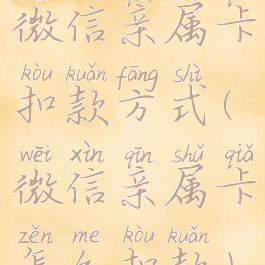 微信亲属卡
kòu kuǎn fāng shì
扣款方式(
wēi xìn qīn shǔ qiǎ
微信亲属卡
zěn me kòu kuǎn
怎么扣款)